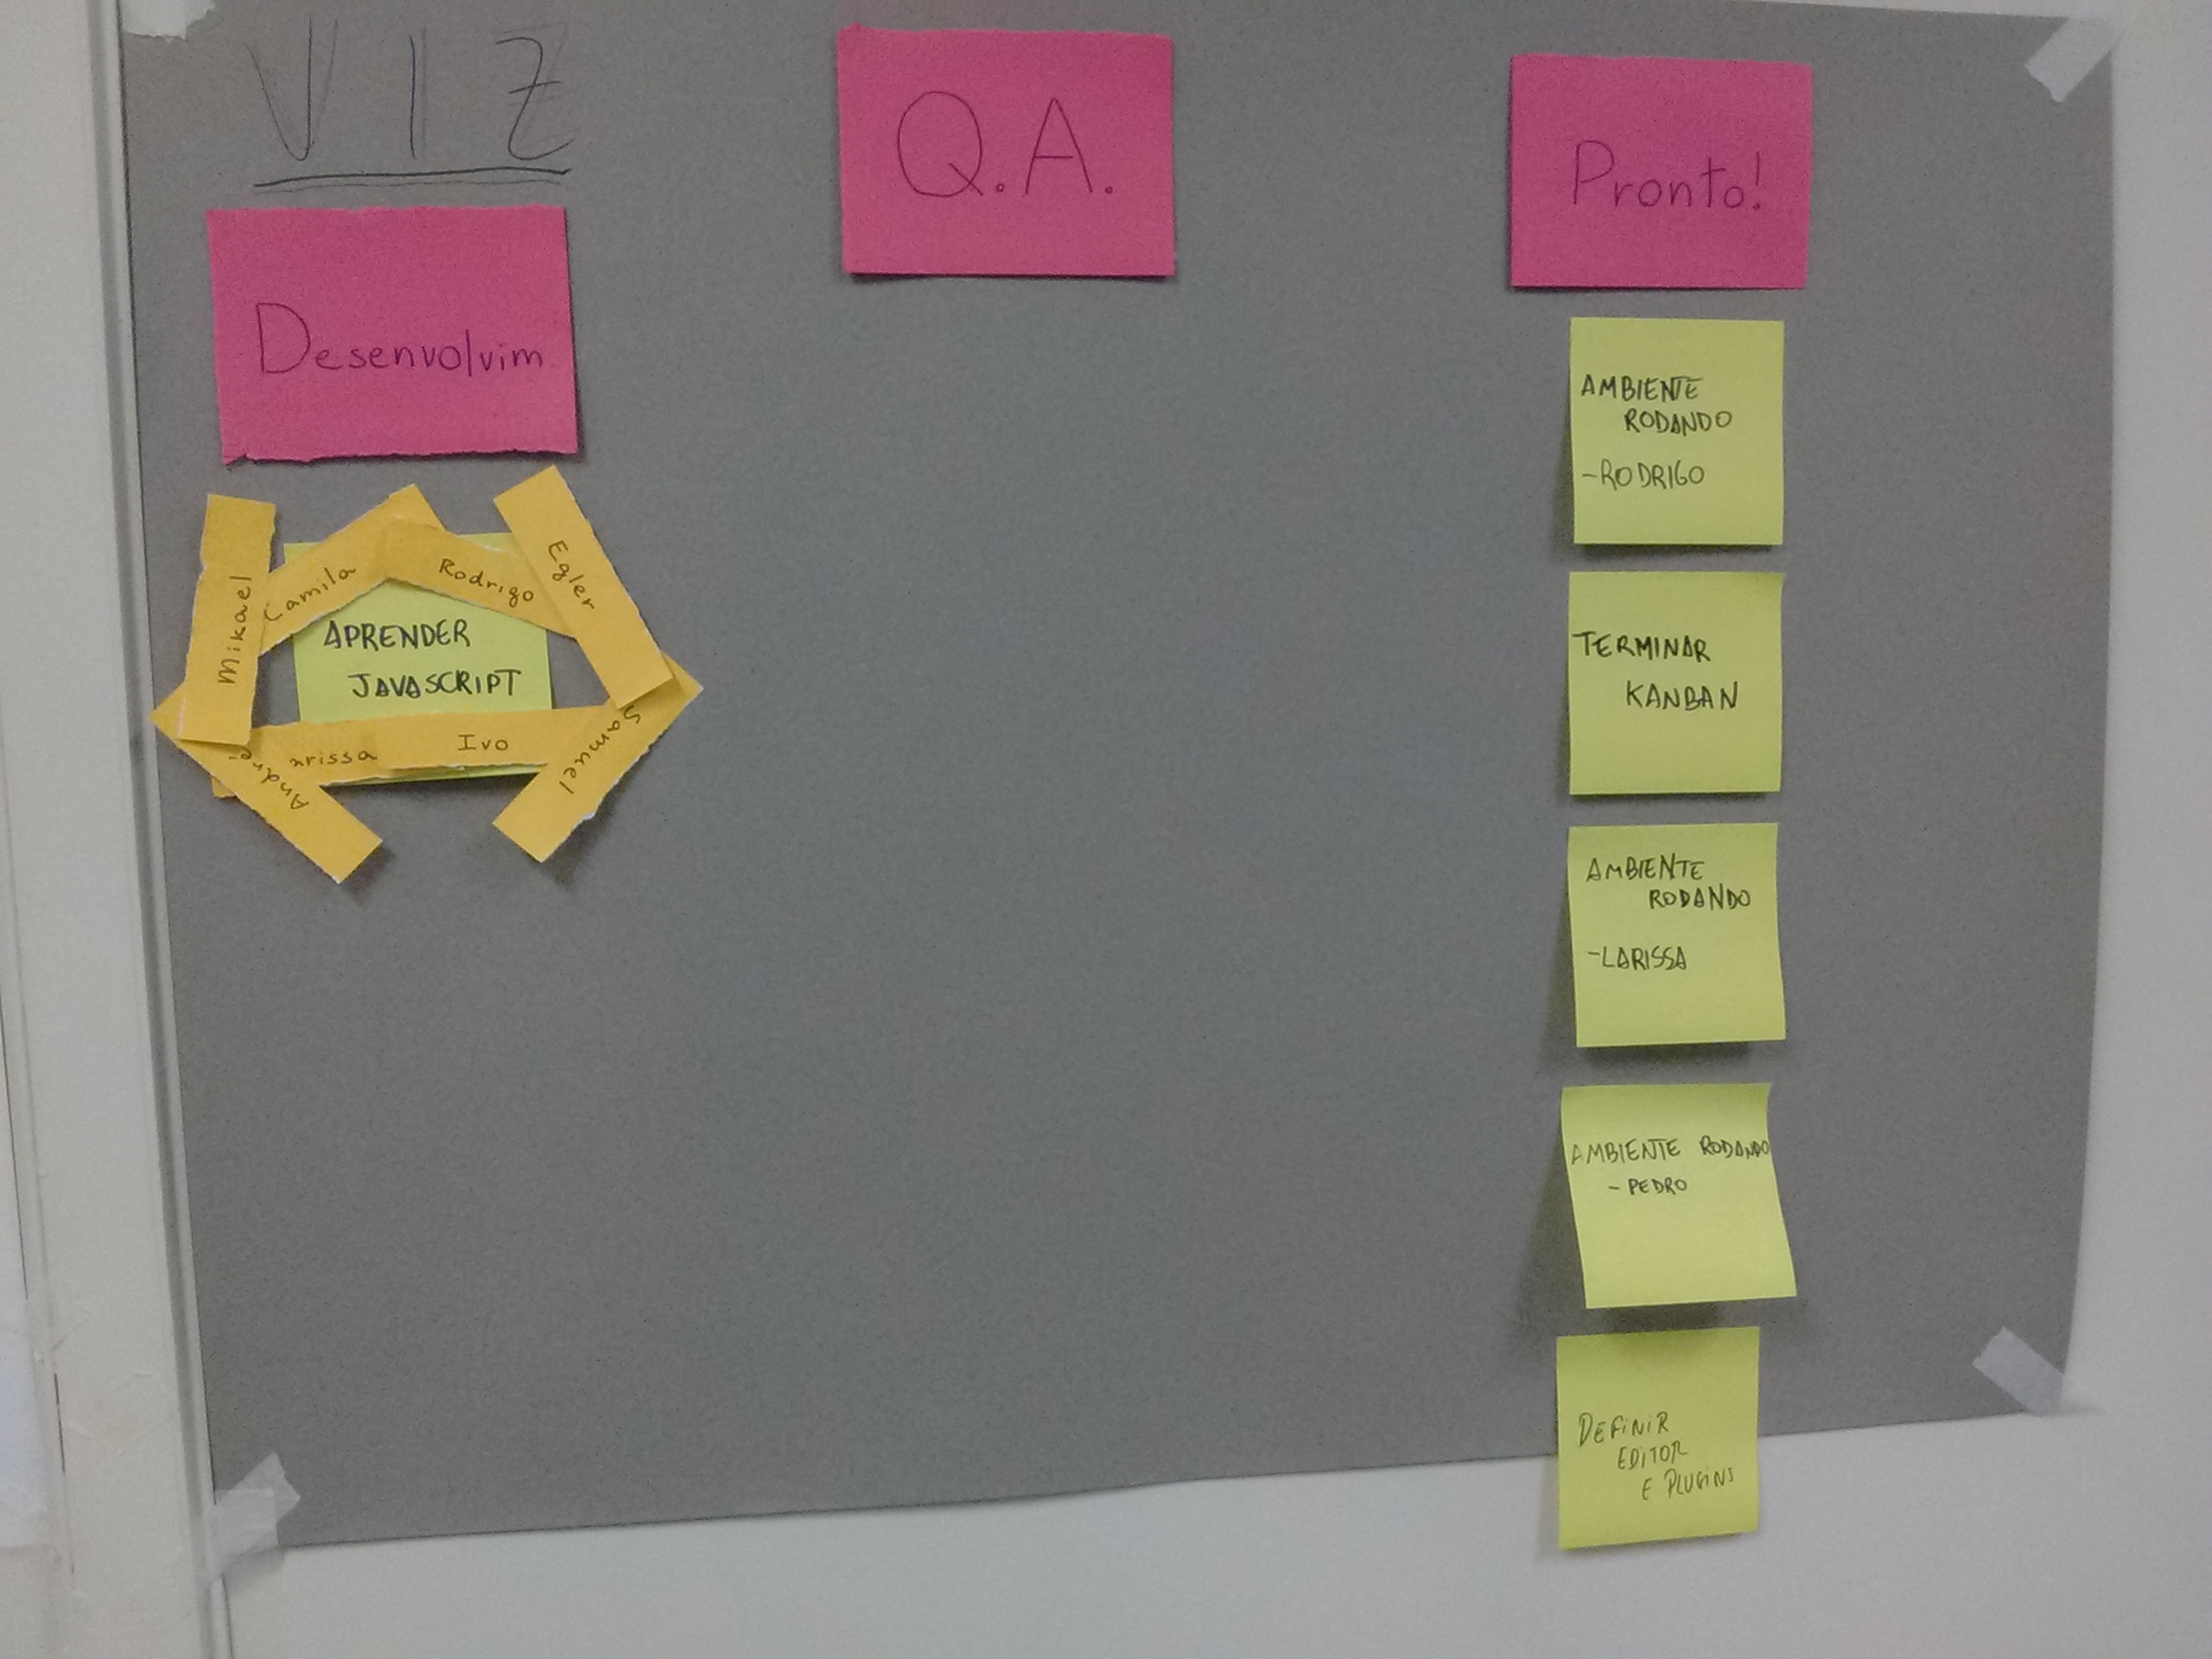 VIZ
Desenvolvim.
Mikael
Camila
Rodrigo
Egler
APRENDER
JAVASCRIPT
Andrei
arissa
Ivo
Samuel
Q.A.
Pronto!
AMBIENTE
RODANDO
-RODRIGO
TERMINAR
KANBAN
AMBIENTE
RODANDO
-LARISSA
AMBIENTE RODANDO
- PEDRO
DEFINIR
EDITOR
E PLUGINS